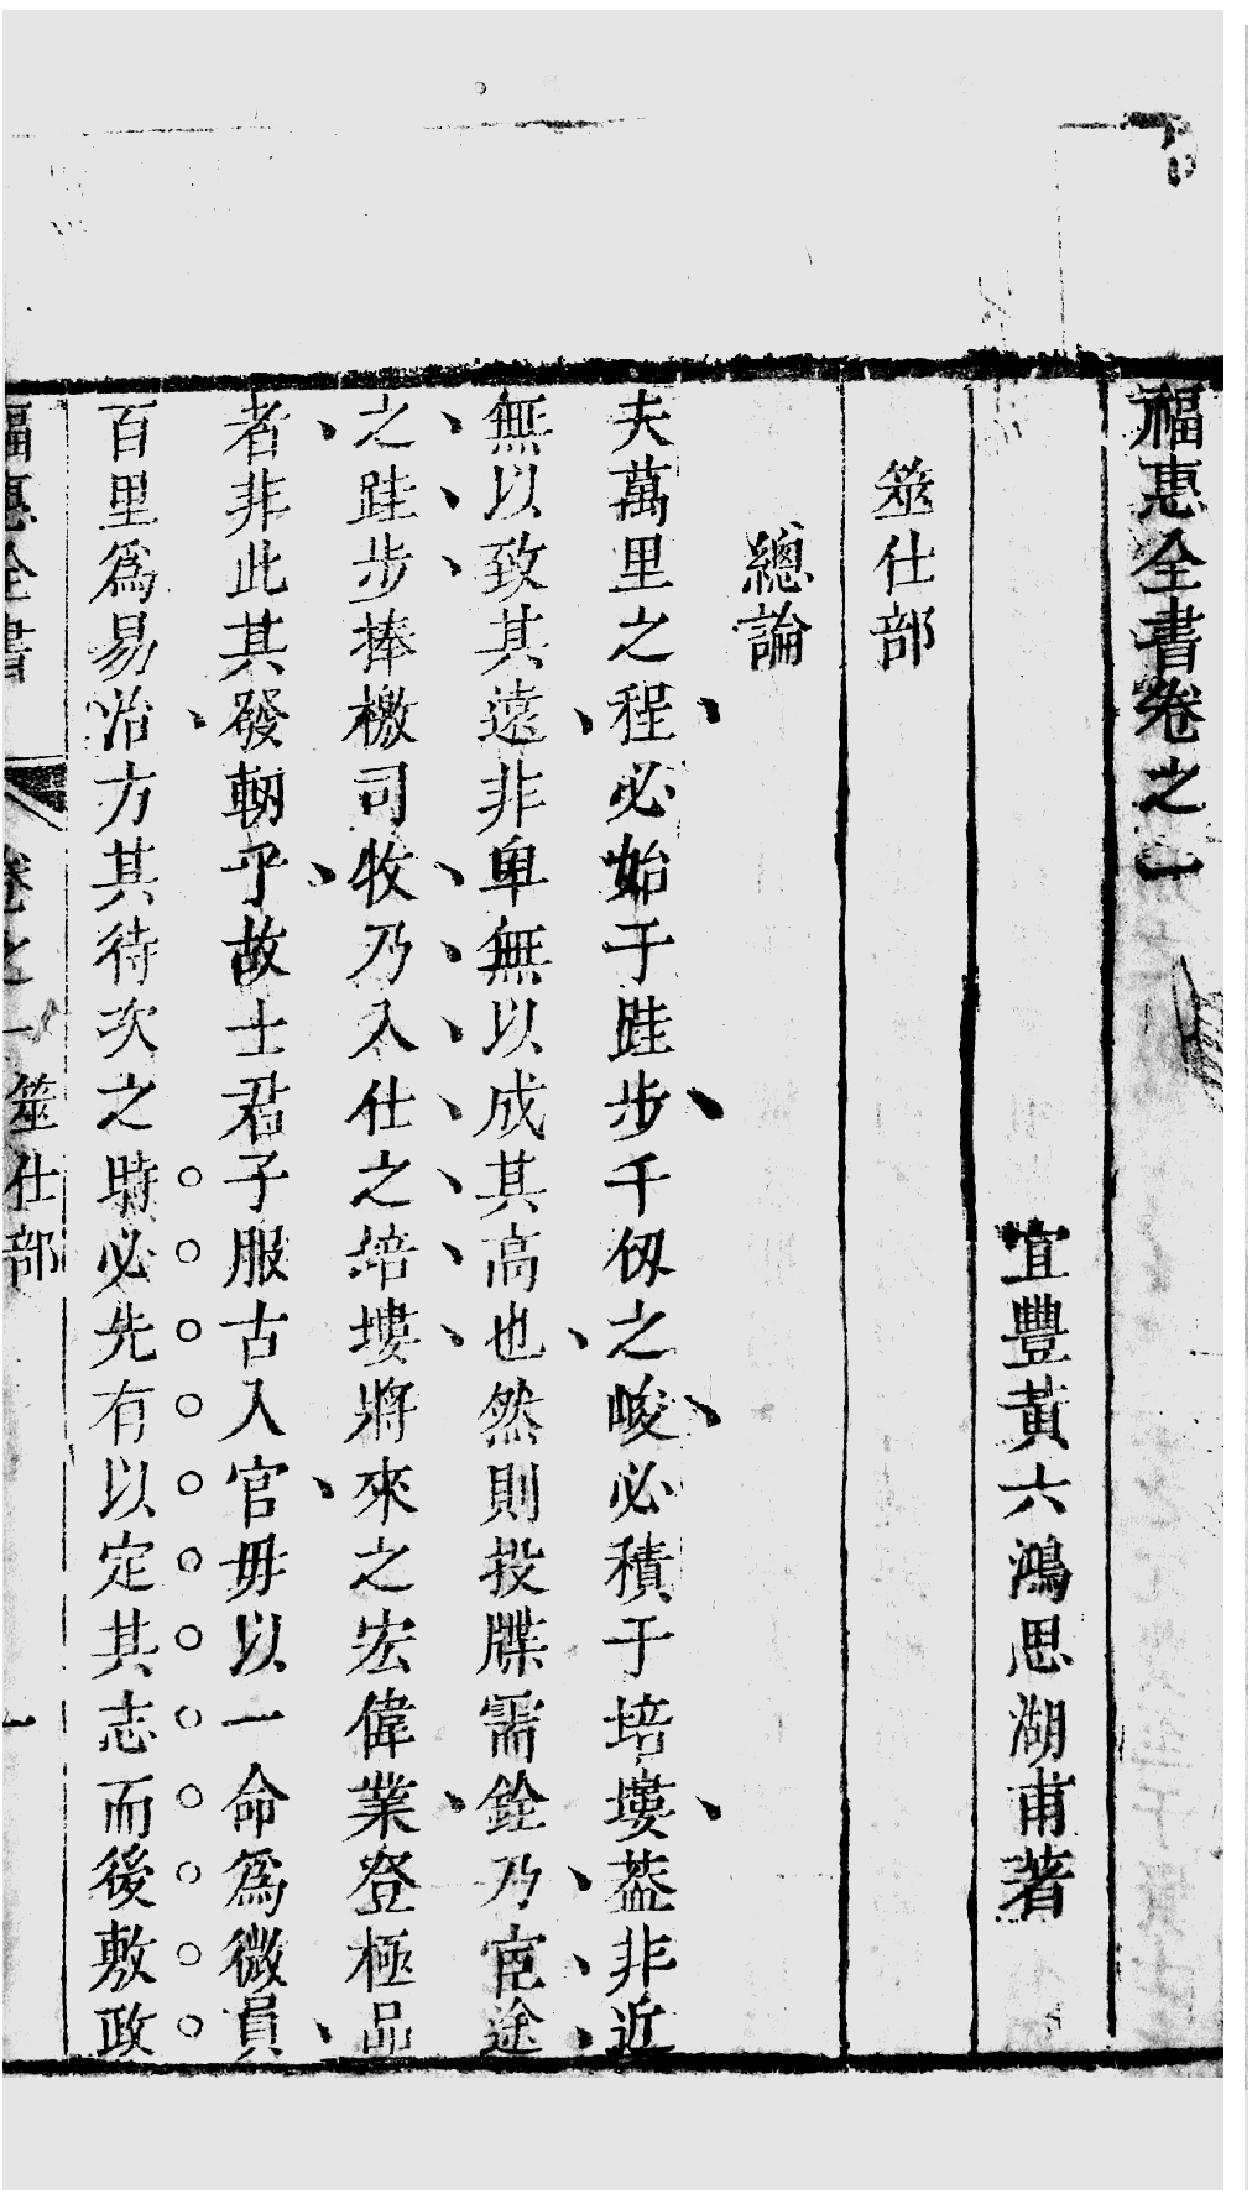 福惠全書卷之一
宜豐黃六鴻思湖甫著
筮仕部
總論
夫萬里之程必始于跬步千仞之峻必積于培塿葢非近
無以致其遠非卑無以成其高也然則投牒需銓乃宦途
之跬步捧檄司牧乃入仕之培塿將來之宏偉業登極品
者非此其發軔乎故士君子服古入官毋以一命爲微員
百里爲易治方其待次之時必先有以定其志而後敷政
福惠全書 卷之一 筮仕部 一